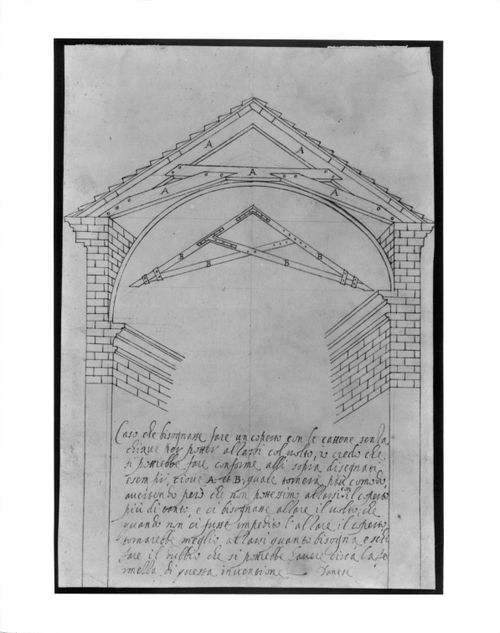 A
A
A A A
B B
B B
Caso che bisognasse fare un coperto con le cattene senza
chiaue per potter alzarsi col uolto, io credo che
si potrebbe fare conforme alli sopra disegnati
esempi, cioue A et B, quale tornerà più comodo,
auertendo però che non potessimo alzarsi con il coperto
più di tanto, e ci bisognasse alzare il uolto, che
quando non ci fusse impedito l'alzare il coperto
tornarebbe meglio alzarsi quanto bisogna e
fare il che si potrebbe
di questa inuentione